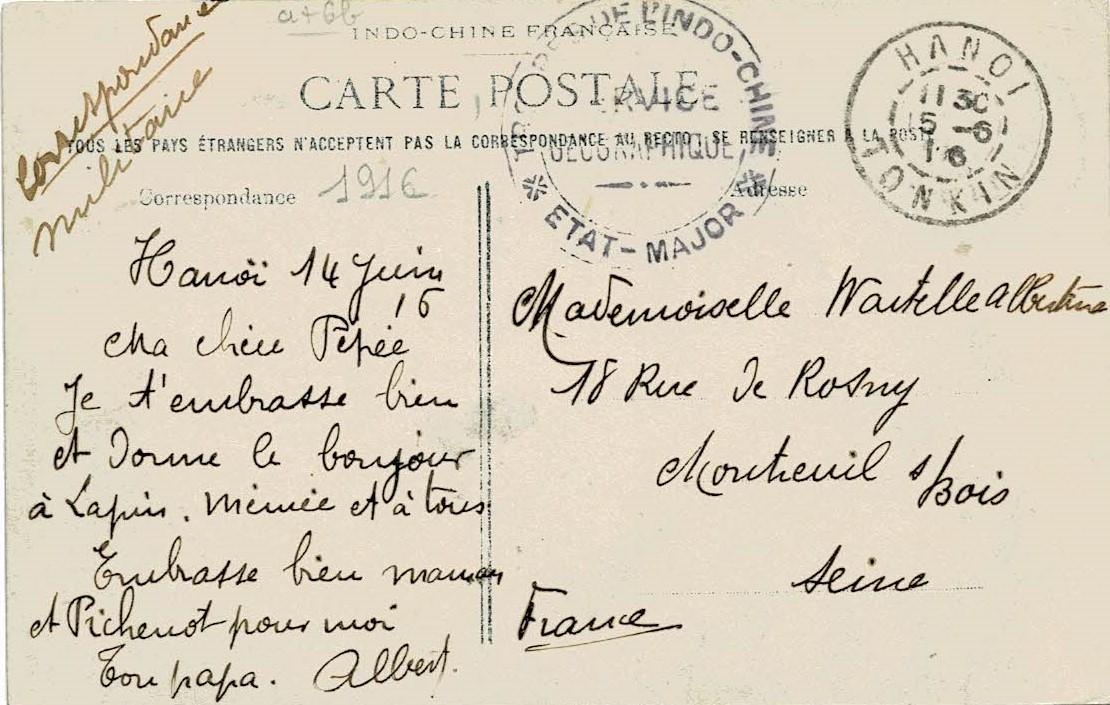 Correspondance
militaire
a+6b
INDO-CHINE FRANÇAISE
CARTE POSTALE
TOUS LES PAYS ÉTRANGERS N'ACCEPTENT PAS LA CORRESPONDANCE AU RECTO; SE RENSEIGNER À LA POSTE
DE L'INDO-CHINE
GÉOGRAPHIQUE
ETAT-MAJOR
HANOI
11 30
15 -6
16
TONKIN
Correspondance
1916
Adresse
Hanoï 14 Juin
16
Ma chère Pépée
Je t'embrasse bien
et donne le bonjour
à Lapin. Mémée et à tous
Embrasse bien maman
et Pichenot pour moi
Ton papa. Albert.
Mademoiselle Wartelle Albertine
18 Rue de Rosny
Montreuil s/Bois
Seine
France